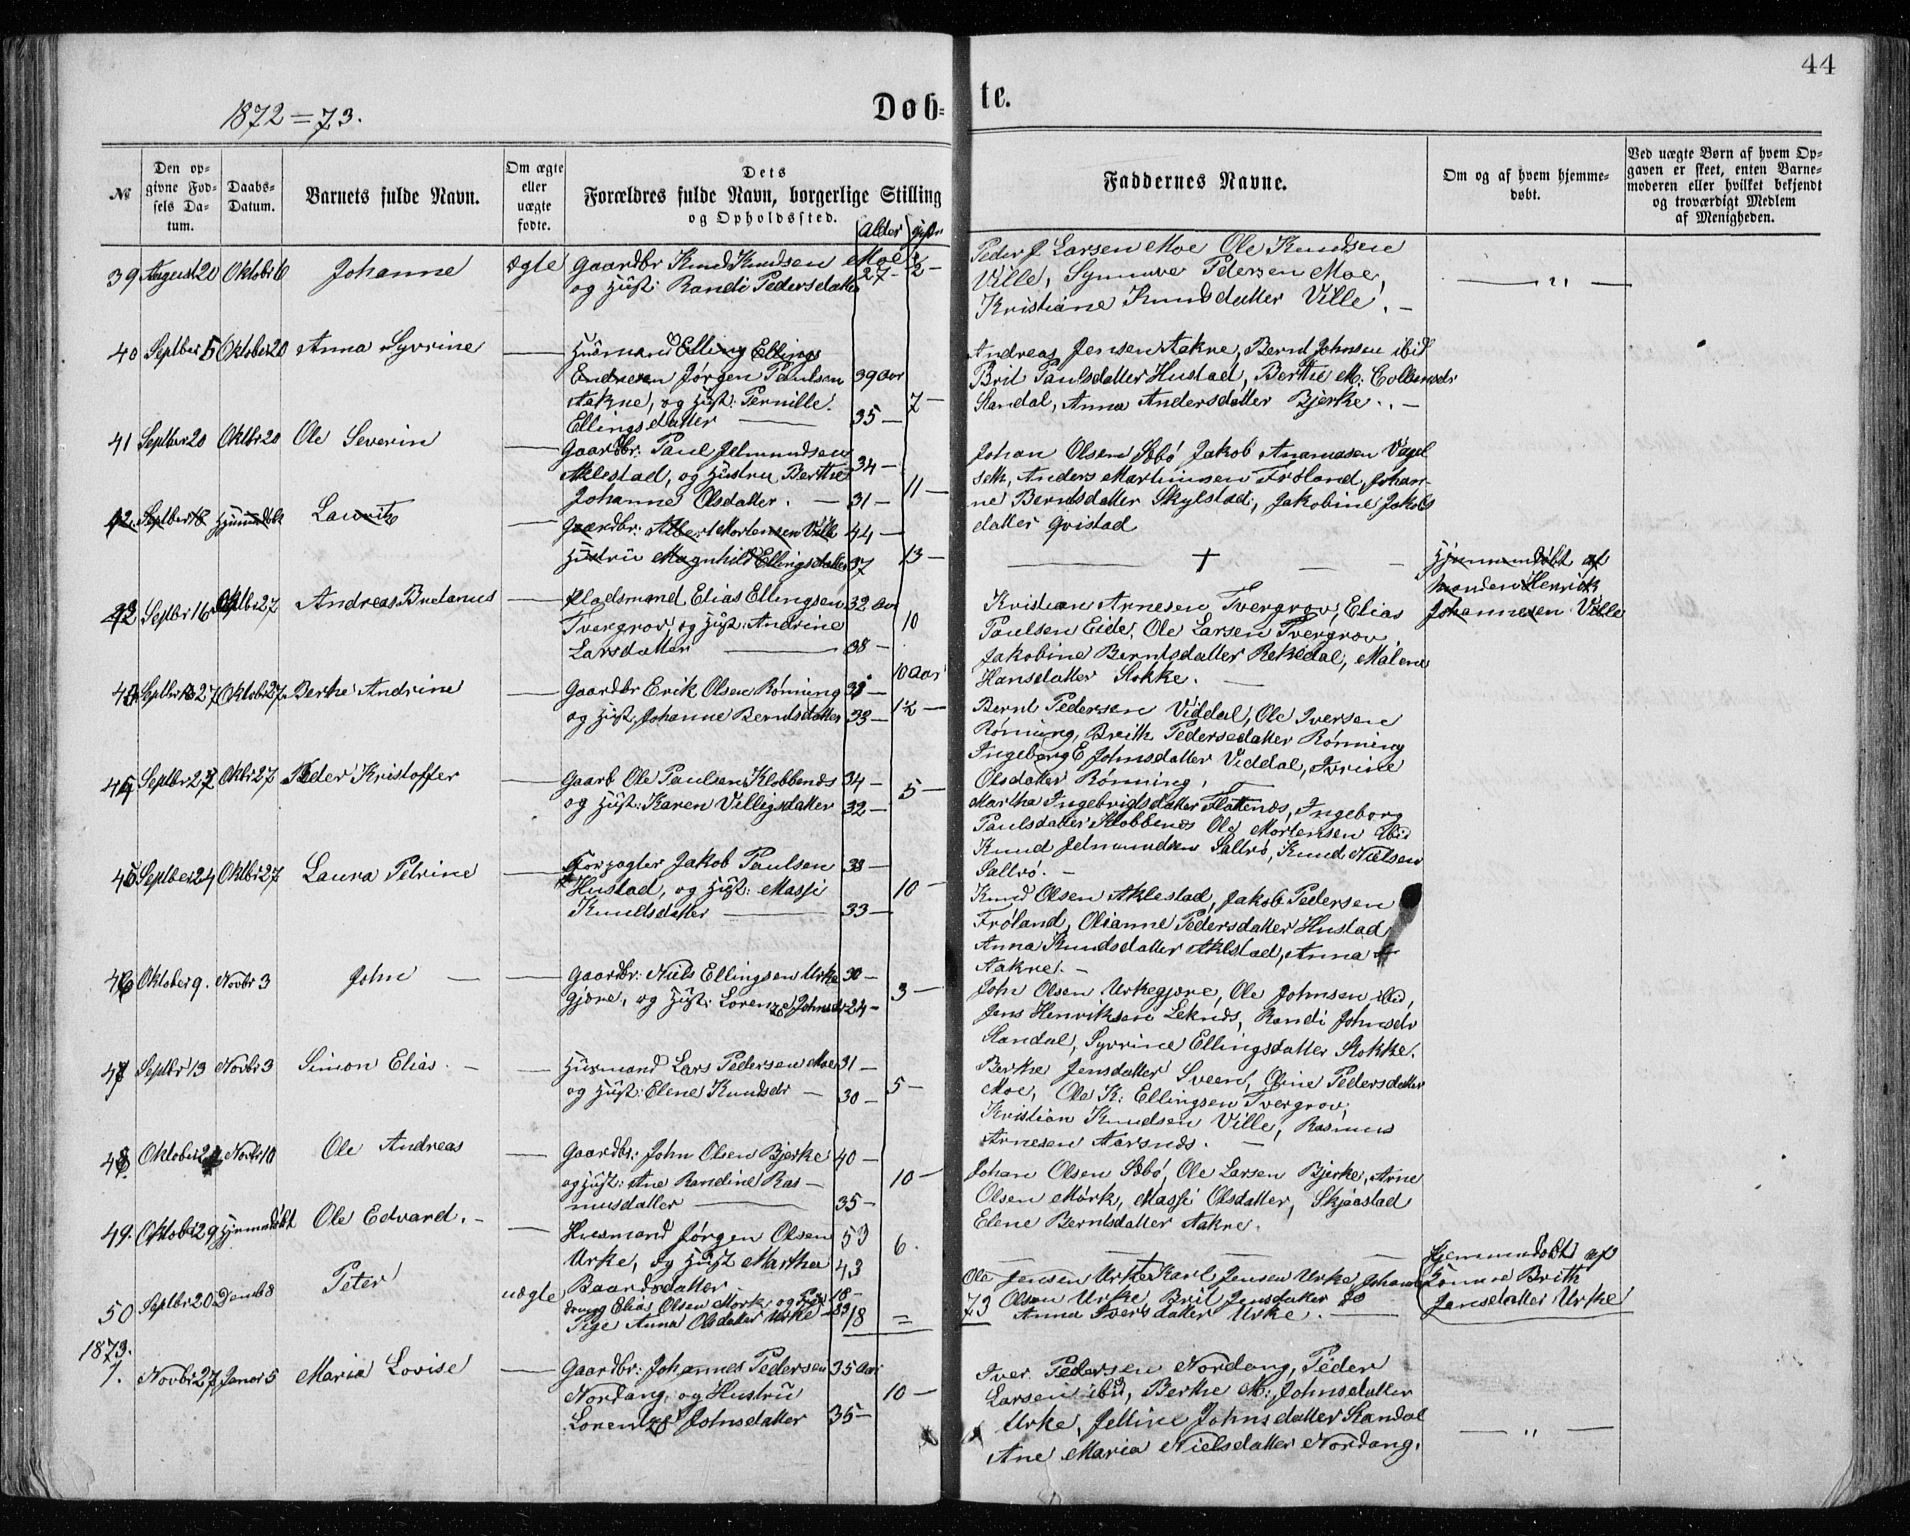 44
1872=73.
Døb= te.
№
Den opgivne Fødsels Datum.
Daabs-Datum.
Barnets fulde Navn.
Om ægte eller uægte fødte.
Dets Forældres fulde Navn, borgerlige Stilling og Opholdssted.
Alder
gifte
Faddernes Navne.
Om og af hvem hjemmedøbt.
Ved uægte Børn af hvem Opgaven er skeet, enten Barnemoderen eller hvilket bekjendt og troværdigt Medlem af Menigheden.
39 August 20 Oktobr 6 Johanne ægte Gaardbr Knud Knudsen Moe
og Hust: Randi Pedersdatter 27 – ½ –
Peder J Larsen Moe Ole Knudsen
Ville, Synnøve Pedersen Moe,
Kristiane Knudsdatter Ville. –
— " —
40 Septber 5 Oktober 20 Anna Syvrine — Husmand Elling Ellings
Endresen Jørgen Paulsen 39 Aar
Aakne, og Hust: Pernille. 7 –
Ellingsdatter — 35 –
Andreas Jensen Aakne, Bernt Johnsen ibid
Brit Paulsdatter Hustad, Berthe M: Colbensdr
Standal, Anna Andersdatter Bjerke. –
41 Septber 20 Oktbr 20 Ole Severin — Gaardbr: Paul Jetmundsen 34 –
Aklestad, og Hustru Berthe
Johanne Olsdatter. — 31 – 11 –
Johan Olsen Sæbø Jakob Ananiasen
Anders Martinusen Frøland, Johan-
ne Berndsdatter Skylstad, Jakobine Jakobs
datter Qvistad
42. Septber 18 Hjemmdøbt Lauritz — Gaardbr: Albert Mortensen Ville 44 –
Hustru Magnhild Ellingsdatter 37 13 –
— + —
Hjemmedøbt af
manden Henrik
Johannesen Ville
42 Septbr 16 Oktbr 27 Andreas Budanus — Pladsmand Elias Ellingsen 32 Aar
Tvergrov, og Hust: Andrine 10
Larsdatter — 38 –
10 Aar
Kristian Arnesen Tvergrov, Elias
Paulsen Eide, Ole Larsen Tvergrov,
Jakobine Berntsdatter Rekkedal, Malene
Hansdatter Stokke. –
43 Septbr 27 Oktobr 27 Berte Andrine — Gaardbr Erik Olsen Rønning 38 –
og Hust: Johanne Berntsdatter 33 – 1½ –
Bernt Pedersen Viddal, Ole Iversen
Rønning, Brith Pedersdatter Rønning
Ingeborg E Johnsdatter Viddal, Ivrine
Olsdatter Rønning, –
44 Septbr 27 Oktbr 27 Peder Kristoffer — Gaarb Ole Paulsen Klobbenæs 34 –
og Hust: Karen Villigsdatter 32 – 5 –
Martha Ingebrigdsdatter Flatenæs, Ingeborg
Paulsdatter Klobbenæs Ole Mortensen ibid
Knud Jetmundsen Saltrø, Knud Nielsen
Saltrø. –
45 Septber 24 Oktbr 27 Laura Petrine — Forpagter Jakob Paulsen 38 –
Hustad, og Hust: Massi 10 –
Knudsdatter — 33 –
Knud Olsen Aklestad, Jakob Pedersen
Frøland, Olianne Pedersdatter Hustad
Anna Knudsdatter Aklstad, Anna
Aakne. –
46 Oktober 9. Novbr 3 John — Gaardbr: Niels Ellingsen Urke 30 –
gjære, og Hust: Lorenze Johnsdr 24 – 3 –
John Olsen Urkegjære, Ole Johnsen ibid,
Jens Henriksen Leknæs, Randi Johnsdr
Standal, Syvrine Ellingsdatter Stokke.
47 Septbr 13 Novbr 3 Simon Elias. — Husmand Lars Pedersen Moe 31 –
og Hust: Elene Knudsdr – 30 – 5 –
Berthe Jensdatter Sveen, Oline Pedersdatter
Moe, Ole K: Ellingsen Tvergrov,
Kristian Knudsen Ville, Rasmus
Arnesen Aarsnæs. –
48 Oktober Novbr 10 Ole Andreas — Gaardbr: John Olsen Bjerke 40 –
og Hust: Ane Randine Ras – 10 –
musdatter — 35 –
Johan Olsen Sæbø, Ole Larsen Bjerke, Arne
Olsen Mørk, Massi Olsdatter, Skjåstad
Elene Berntsdatter Aakne.
49. Oktobr 29 Hjemmdøbt Ole Edvard. — Husmand Jørgen Olsen 53
Urke, og Hust Martha 43 6.
Baardsdatter
— + —
Hjemmedøbt af
Brith
Jensdatter Urke
50 Septbr 20 Dembr 8 Peter uægte dreng Elias Olsen Mork, og 18 –
Pige Anna Olsdatter Urke – 18 =
Ole Jensen Urke Karl Jensen Urke, Johan
73 Olsen Urke, Brit Jensdatter do
Anna Iversdatter Urke. —
1873.
1. Novbr 27 Januar 5 Maria Lovise — Gaardbr: Johannes Pedersen 35 Aar
Nordang, og Hustru 10 –
Lorentze Johnsdatter 35 –
Iver Pedersen Nordang, Peder
Larsen ibid, Berthe M: Johnsdatter
Urke, Jelline Johnsdatter Standal
Ane Maria Nielsdatter Nordang.
— " —